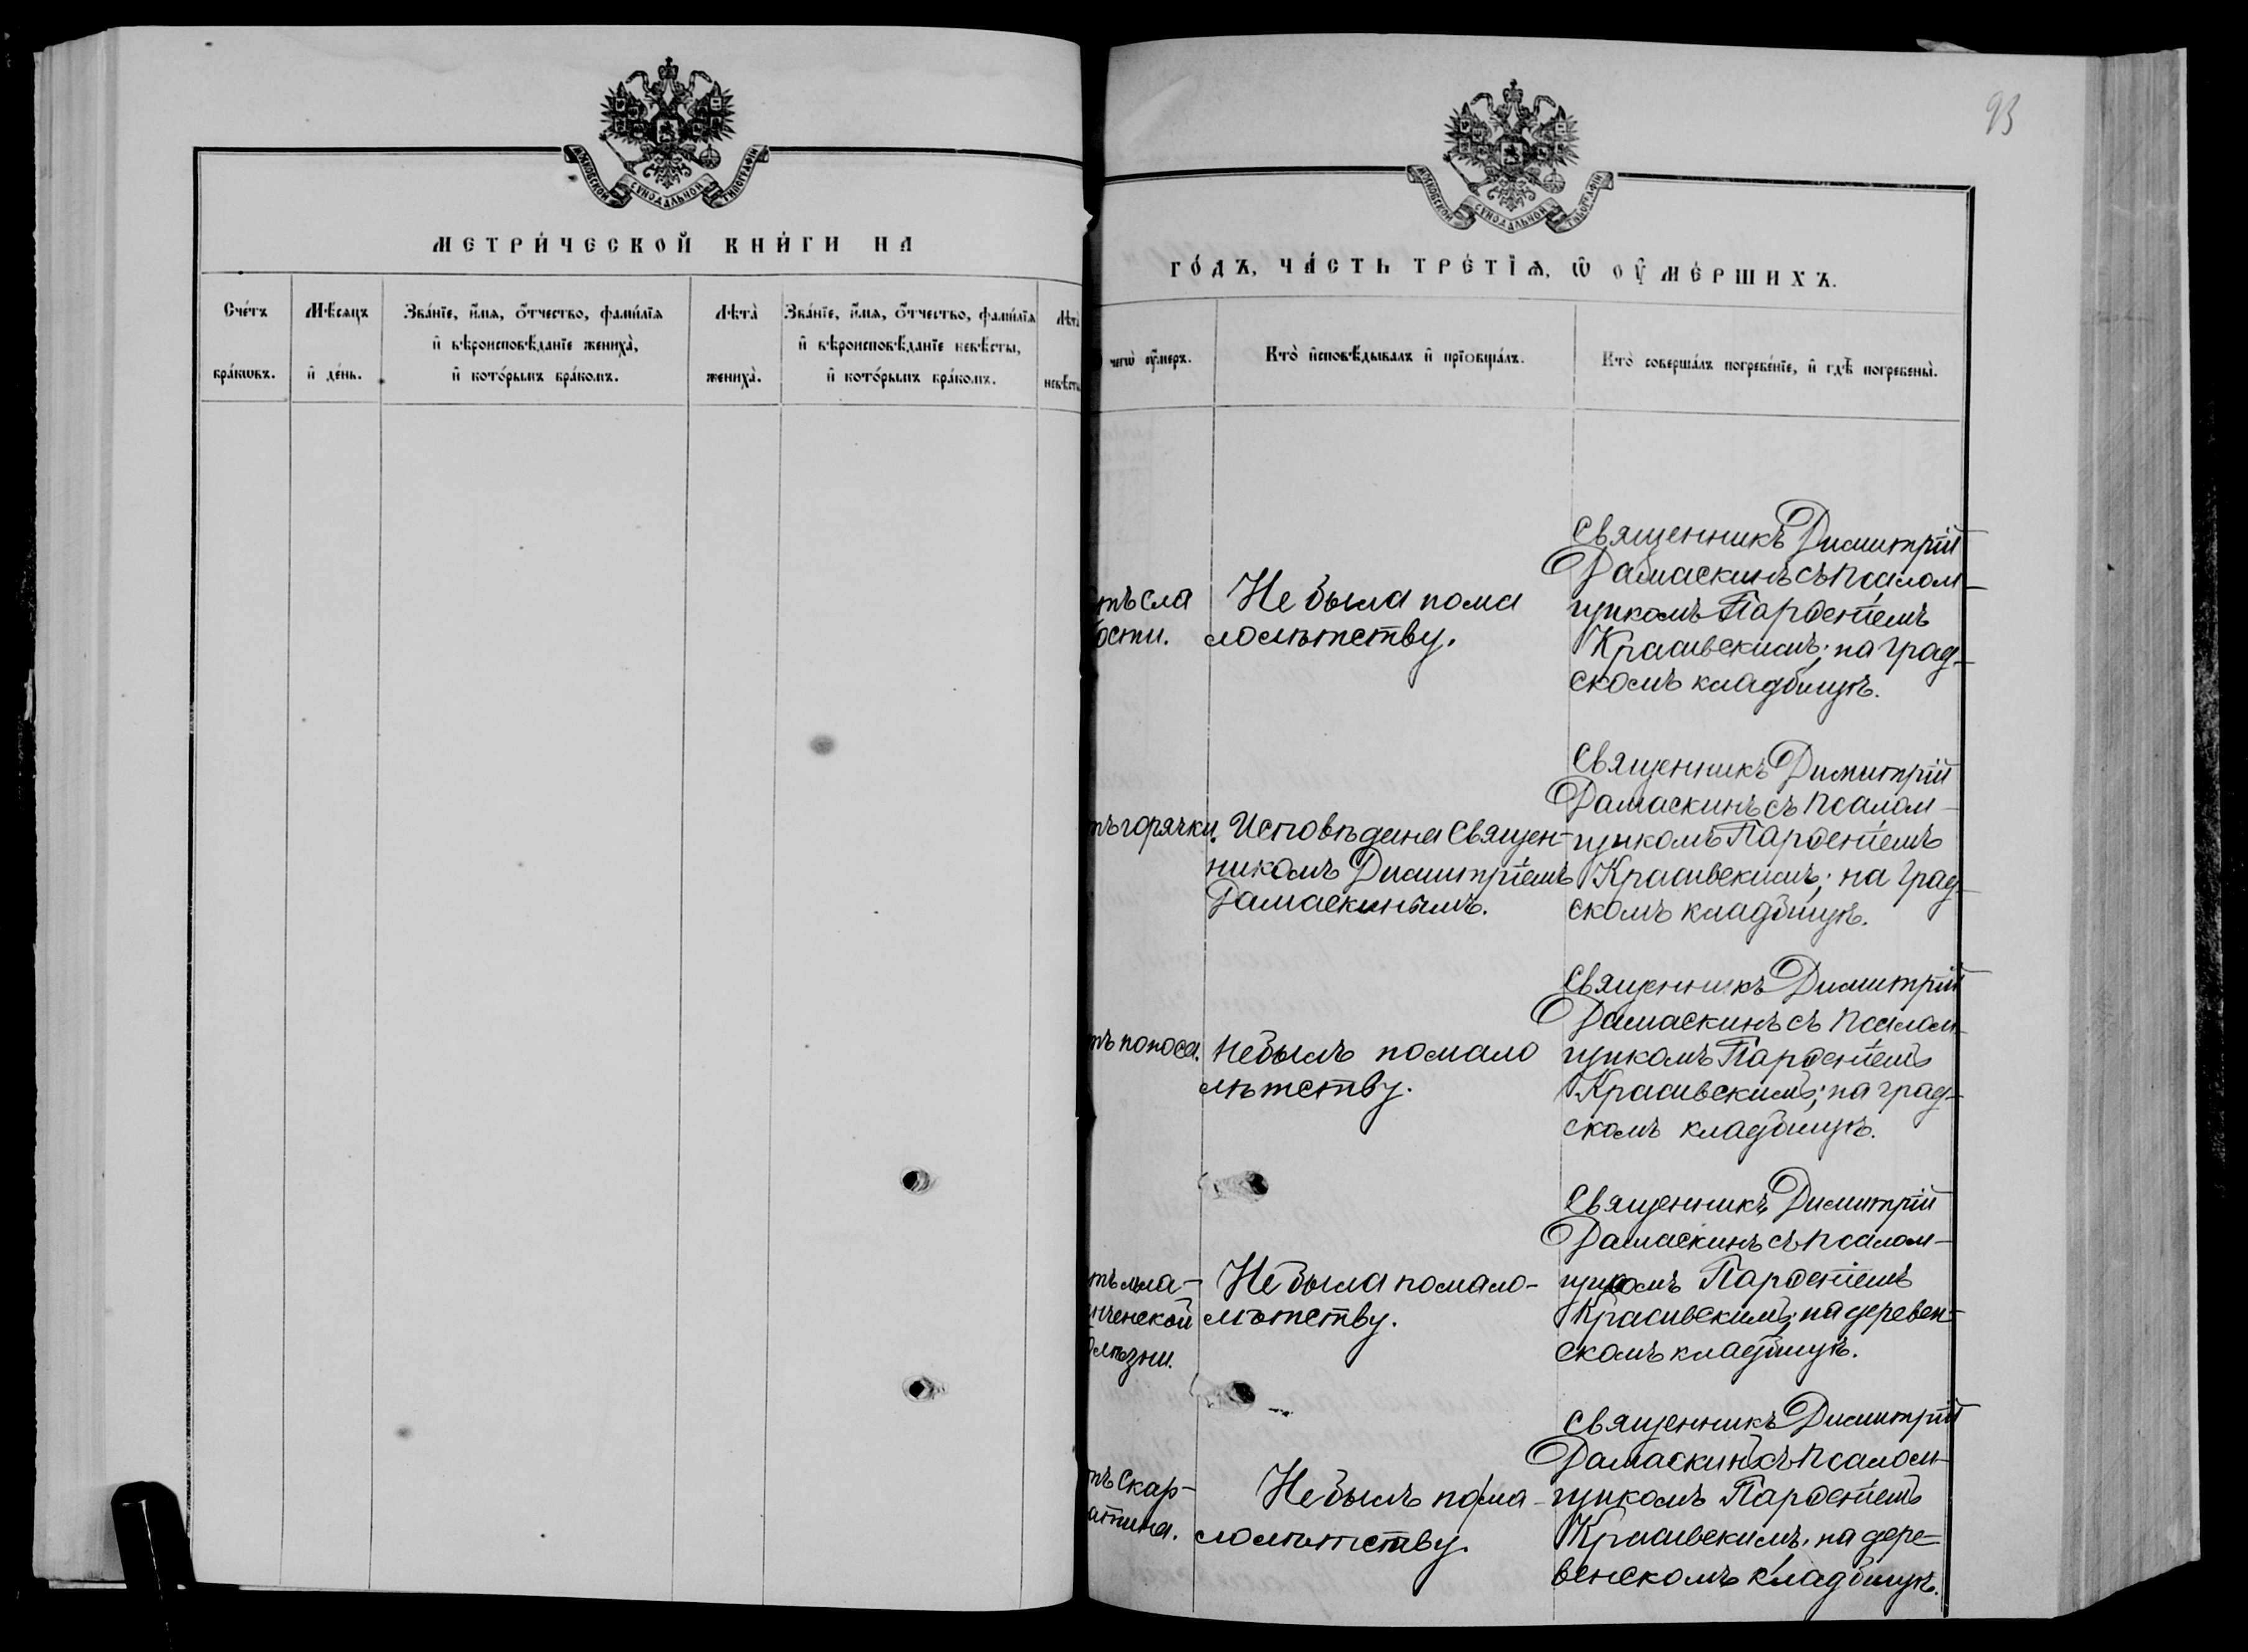 МОСКОВСКОЙ СѴНОДАЛЬНОЙ ТИПОГРАФІИ
МЕТРИ́ЧЕСКОЙ КНИ́ГИ НА
Сче́тъ бра́кѡвъ.
Мѣ́сяцъ и҆ де́нь.
Зва́нїе, и҆́мѧ, ѻ҆́тчество, фами́лїѧ
и҆ вѣроисповѣ́данїе жениха̀,
и҆ кото́рымъ бра́комъ.
Лѣта̀ жениха̀.
Зва́нїе, и҆́мѧ, ѻ҆́тчество, фами́лїѧ
и҆ вѣроисповѣ́данїе невѣ́сты,
и҆ кото́рымъ бра́комъ.
93
МОСКОВСКОЙ СѴНОДАЛЬНОЙ ТИПОГРАФІИ
ГО́ДЪ, ЧА́СТЬ ТРЕ́ТЇѦ, Ѡ҆ ОУ҆МЕ́РШИХЪ.
чегѡ̀ оу҆́меръ.
Кто̀ и҆сповѣ́дывалъ и҆ прїѡбща́лъ.
Кто̀ соверша́лъ погребе́нїе, и҆ гдѣ̀ погребены̀.
тъ сла
бости.
Не была пома
лолѣтству.
Священникъ Димитрій
Дамаскинъ съ псалом-
щикомъ Парѳеніемъ
Красивскимъ; на град-
скомъ кладбищѣ.
тъ горячки.
Исповѣдана Священ-
никомъ Димитріемъ
Дамаскинымъ.
Священникъ Димитрій
Дамаскинъ съ псалом-
щикомъ Парѳеніемъ
Красивскимъ; на град-
скомъ кладбищѣ.
тъ поноса.
Небылъ помало
лѣтству.
Священникъ Димитрій
Дамаскинъ съ псалом-
щикомъ Парѳеніемъ
Красивскимъ; на град-
скомъ кладбищѣ.
тъ мла-
нческой
олѣзни.
Не была помало-
лѣтству.
Священникъ Димитрій
Дамаскинъ съ псалом-
щикомъ Парѳеніемъ
Красивскимъ; на деревен-
скомъ кладбищѣ.
тъ скар-
атина.
Небылъ по ма-
лолѣтству.
Священникъ Димитрій
Дамаскинъ съ псалом-
щикомъ Парѳеніемъ
Красивскимъ, на дере-
венскомъ кладбищѣ.